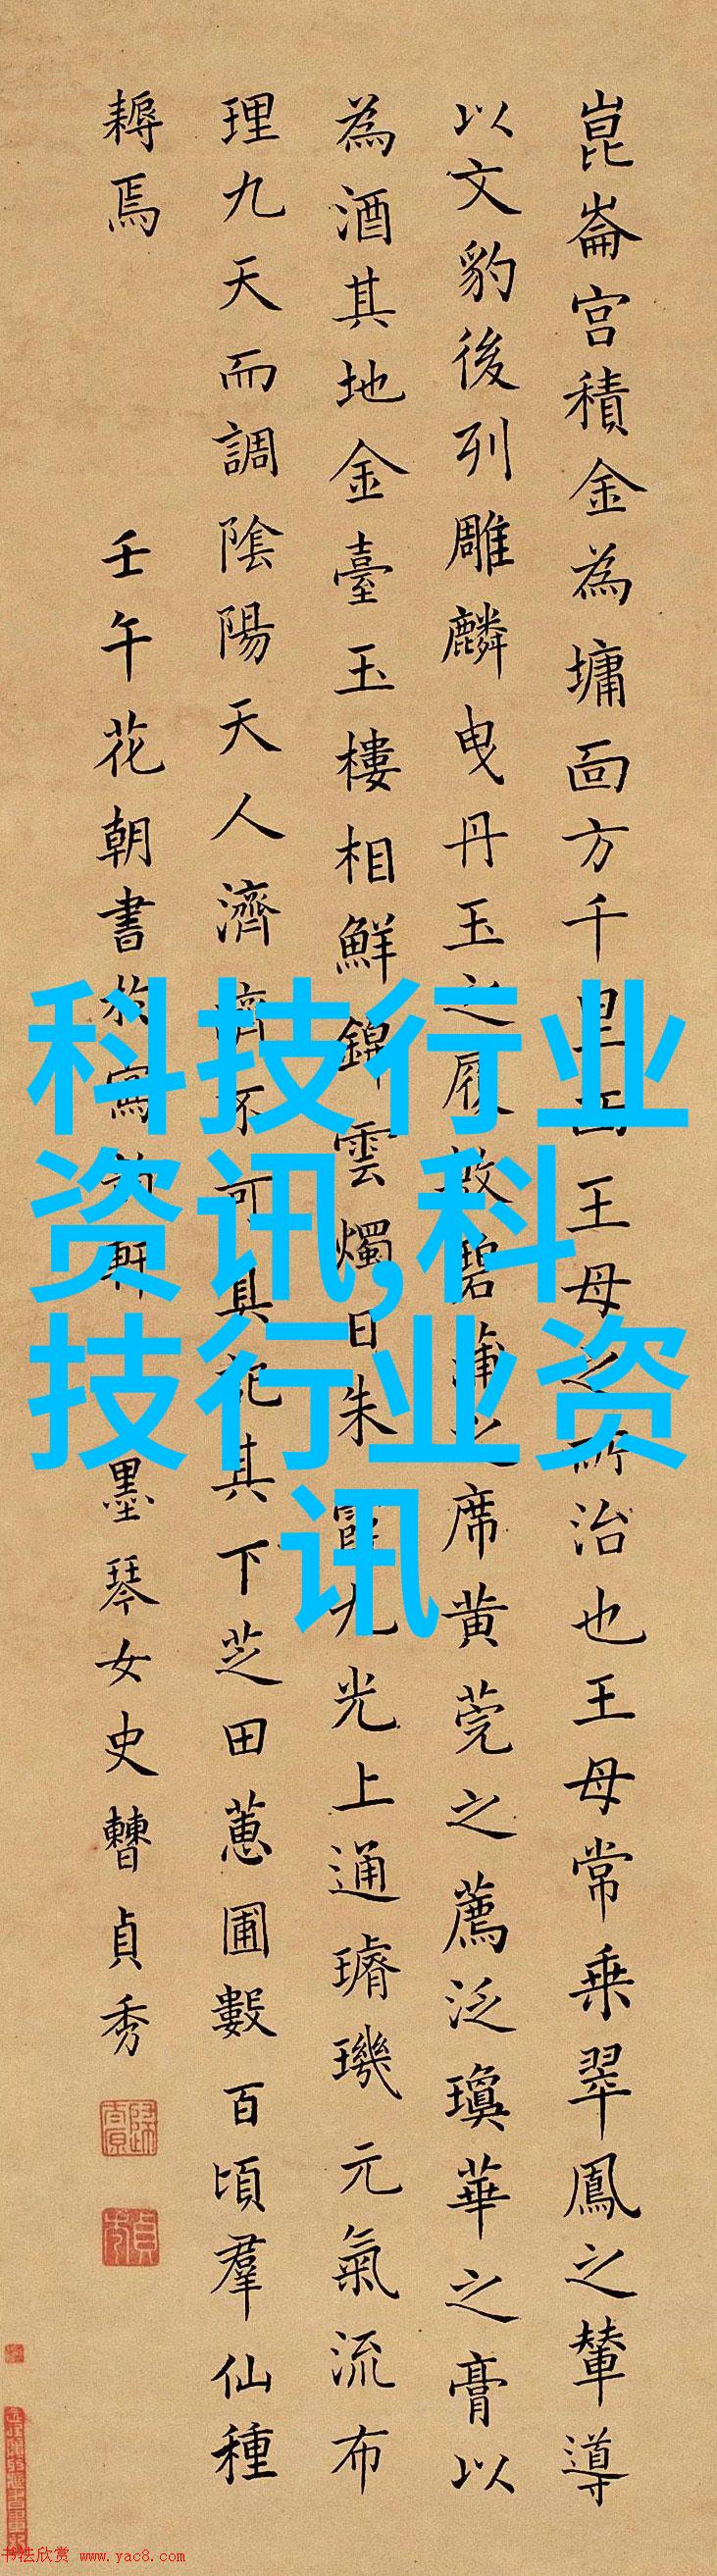 崑崙宮積金為墉面方千里西王母之所治也王母常乗翠鳳之輦導
以文豹後列雕麟曳丹玉之履敷碧蒲之席黄莞之薦泛瓊華之膏以
為酒其地金臺玉樓相鮮錦雲燭日朱霞九光上通璿璣元氣流布
理九天而調陰陽天人濟濟不可具記其下芝田蕙圃數百頃羣仙種
耨焉
壬午花朝書於寫韻軒 墨琴女史曹貞秀
科技行业
资讯,科
技行业资
讯
书法欣赏 www.yac8.com